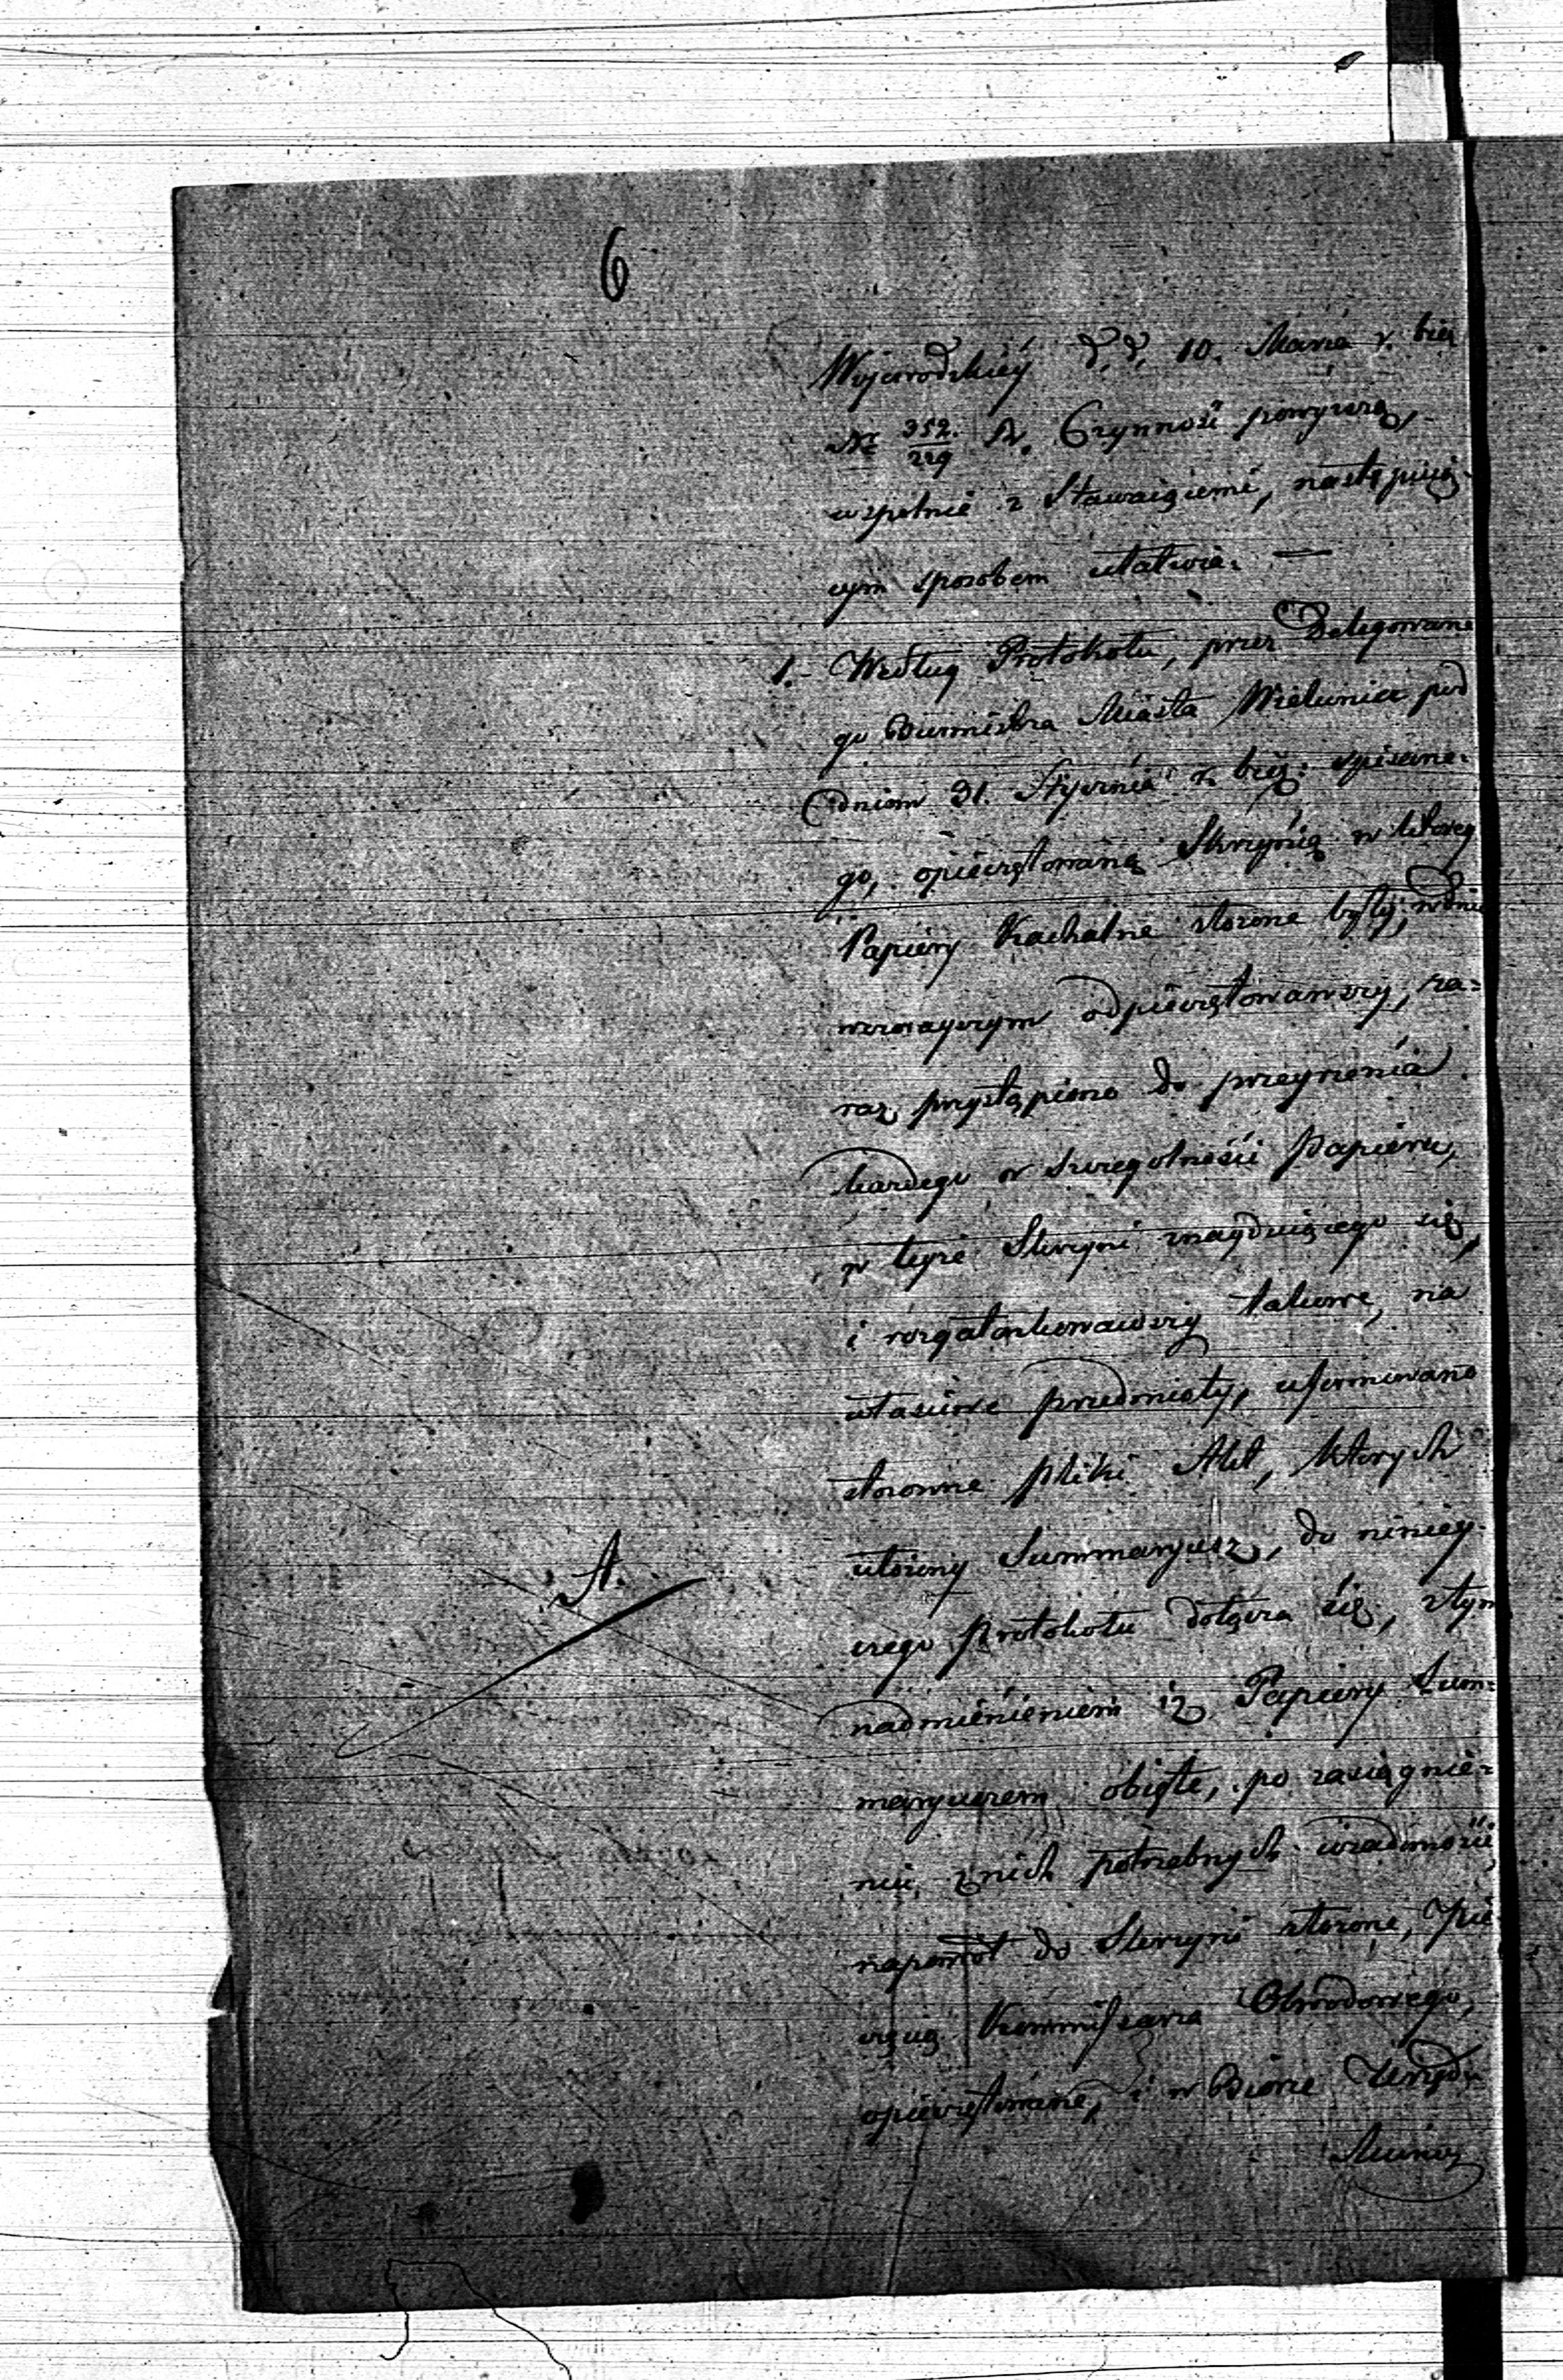 6
Wojewodzkiey d. d. 10. Marca r. bież
Nr 352./229 Czynność powyższą,
wspolnie z Stawaiącemi, następuią-
cym sposobem ułatwia. —
1. Według Protokołu, przez Delegowane
go Burmistrza Miasta Wielunia pod
dniem 31. Stycznia r. bież: spisane-
go, opieczętowaną Skrzynię w ktorey
Papiery Kachalne złożone były, w dniu
wczorayszym odpieczętowawszy, za-
raz przystąpiono do przeyrzenia
każdego w szczegolności Papieru,
w teyże Skrzyni znayduiącego się,
i rozgatonkowawszy takowe, na
właściwe przedmioty, uformowano
stosowne pliki Akt, ktorych
ułożony Summaryusz, do niniey-
A.
szego protokołu dołącza się, z tym
nadmienieniem iż Papiery Sum-
maryuszem obięte, po zasiągnie-
niu z nich potrzebnych wiadomości,
napowrot do Skrzyni złożone, Pie-
częcią Kommissarza Obwodowego,
opieczętowane, i w Biorze Urzędu